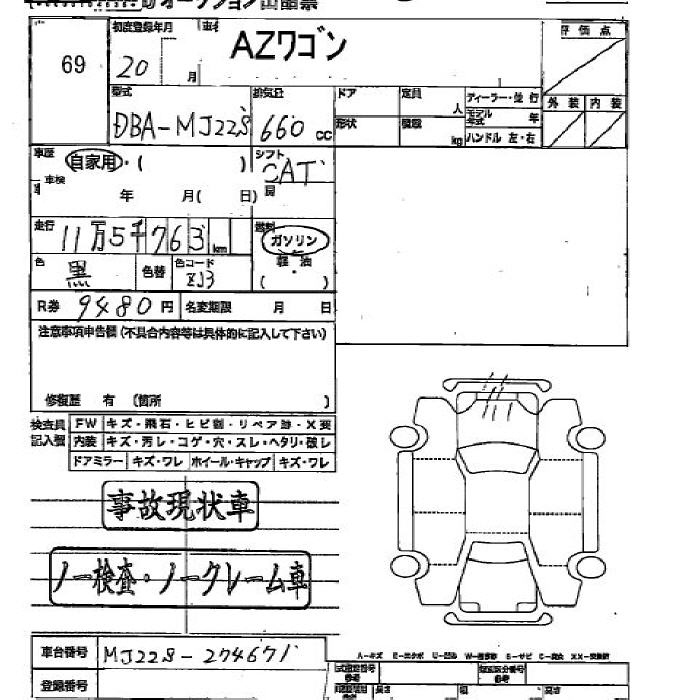 オークション出品票
69
初度登録年月 車名
20 月 AZワゴン
評価点
型式 排気量 ドア 定員 人 ディーラー・並行 外装 内装
DBA-MJ22S 660cc 形状 kg モデル年式 年
ハンドル 左・右
車歴 自家用・( ) シフト CAT
車検 年 月( 日)
走行 11万5千763km 燃料 ガソリン
軽油
( )
色 黒 色替 色コード ZJ3
R券 9480円 名変期限 月 日
注意事項申告欄(不具合内容等は具体的に記入して下さい)
修復歴 有 (箇所 )
検査員記入欄 FW キズ・飛石・ヒビ割・リペア跡・X要
内装 キズ・汚レ・コゲ・穴・スレ・ヘタリ・破レ
ドアミラー キズ・ワレ ホイール・キャップ キズ・ワレ
事故現状車
ノー検査・ノークレーム車
車台番号 MJ22S-274671
登録番号
A-キズ E-エクボ U-凹み S-サビ
長さ 幅 高さ